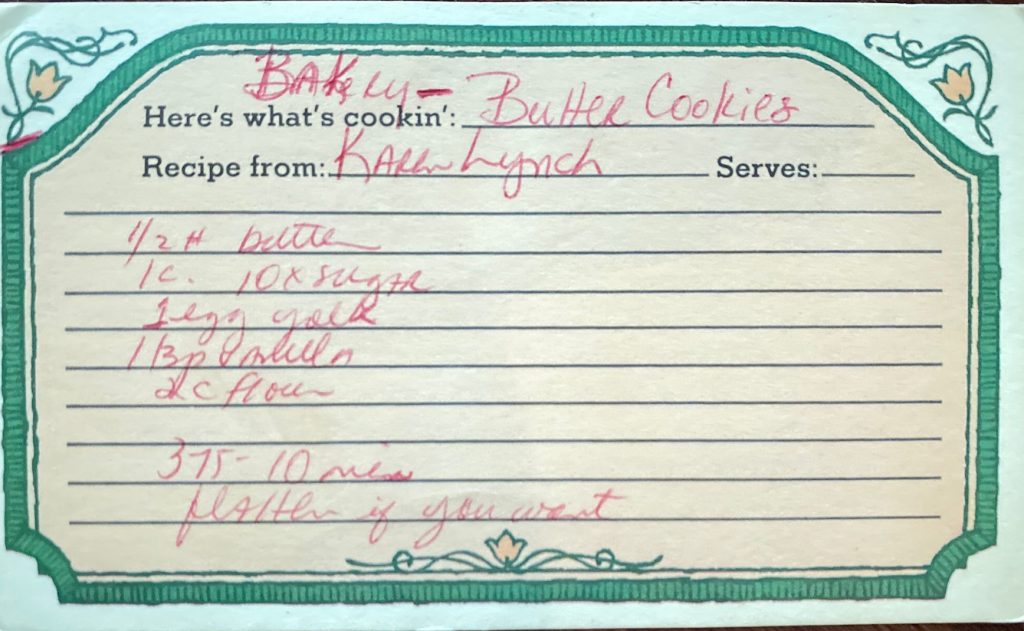 BAKery- Butter Cookies
Here's what's cookin':
Recipe from: KAREN Lynch Serves:
1/2 # butter
1 c. 10X sugar
1 egg yolk
1 tsp vanilla
2 c flour
375- 10 min
flatten if you want